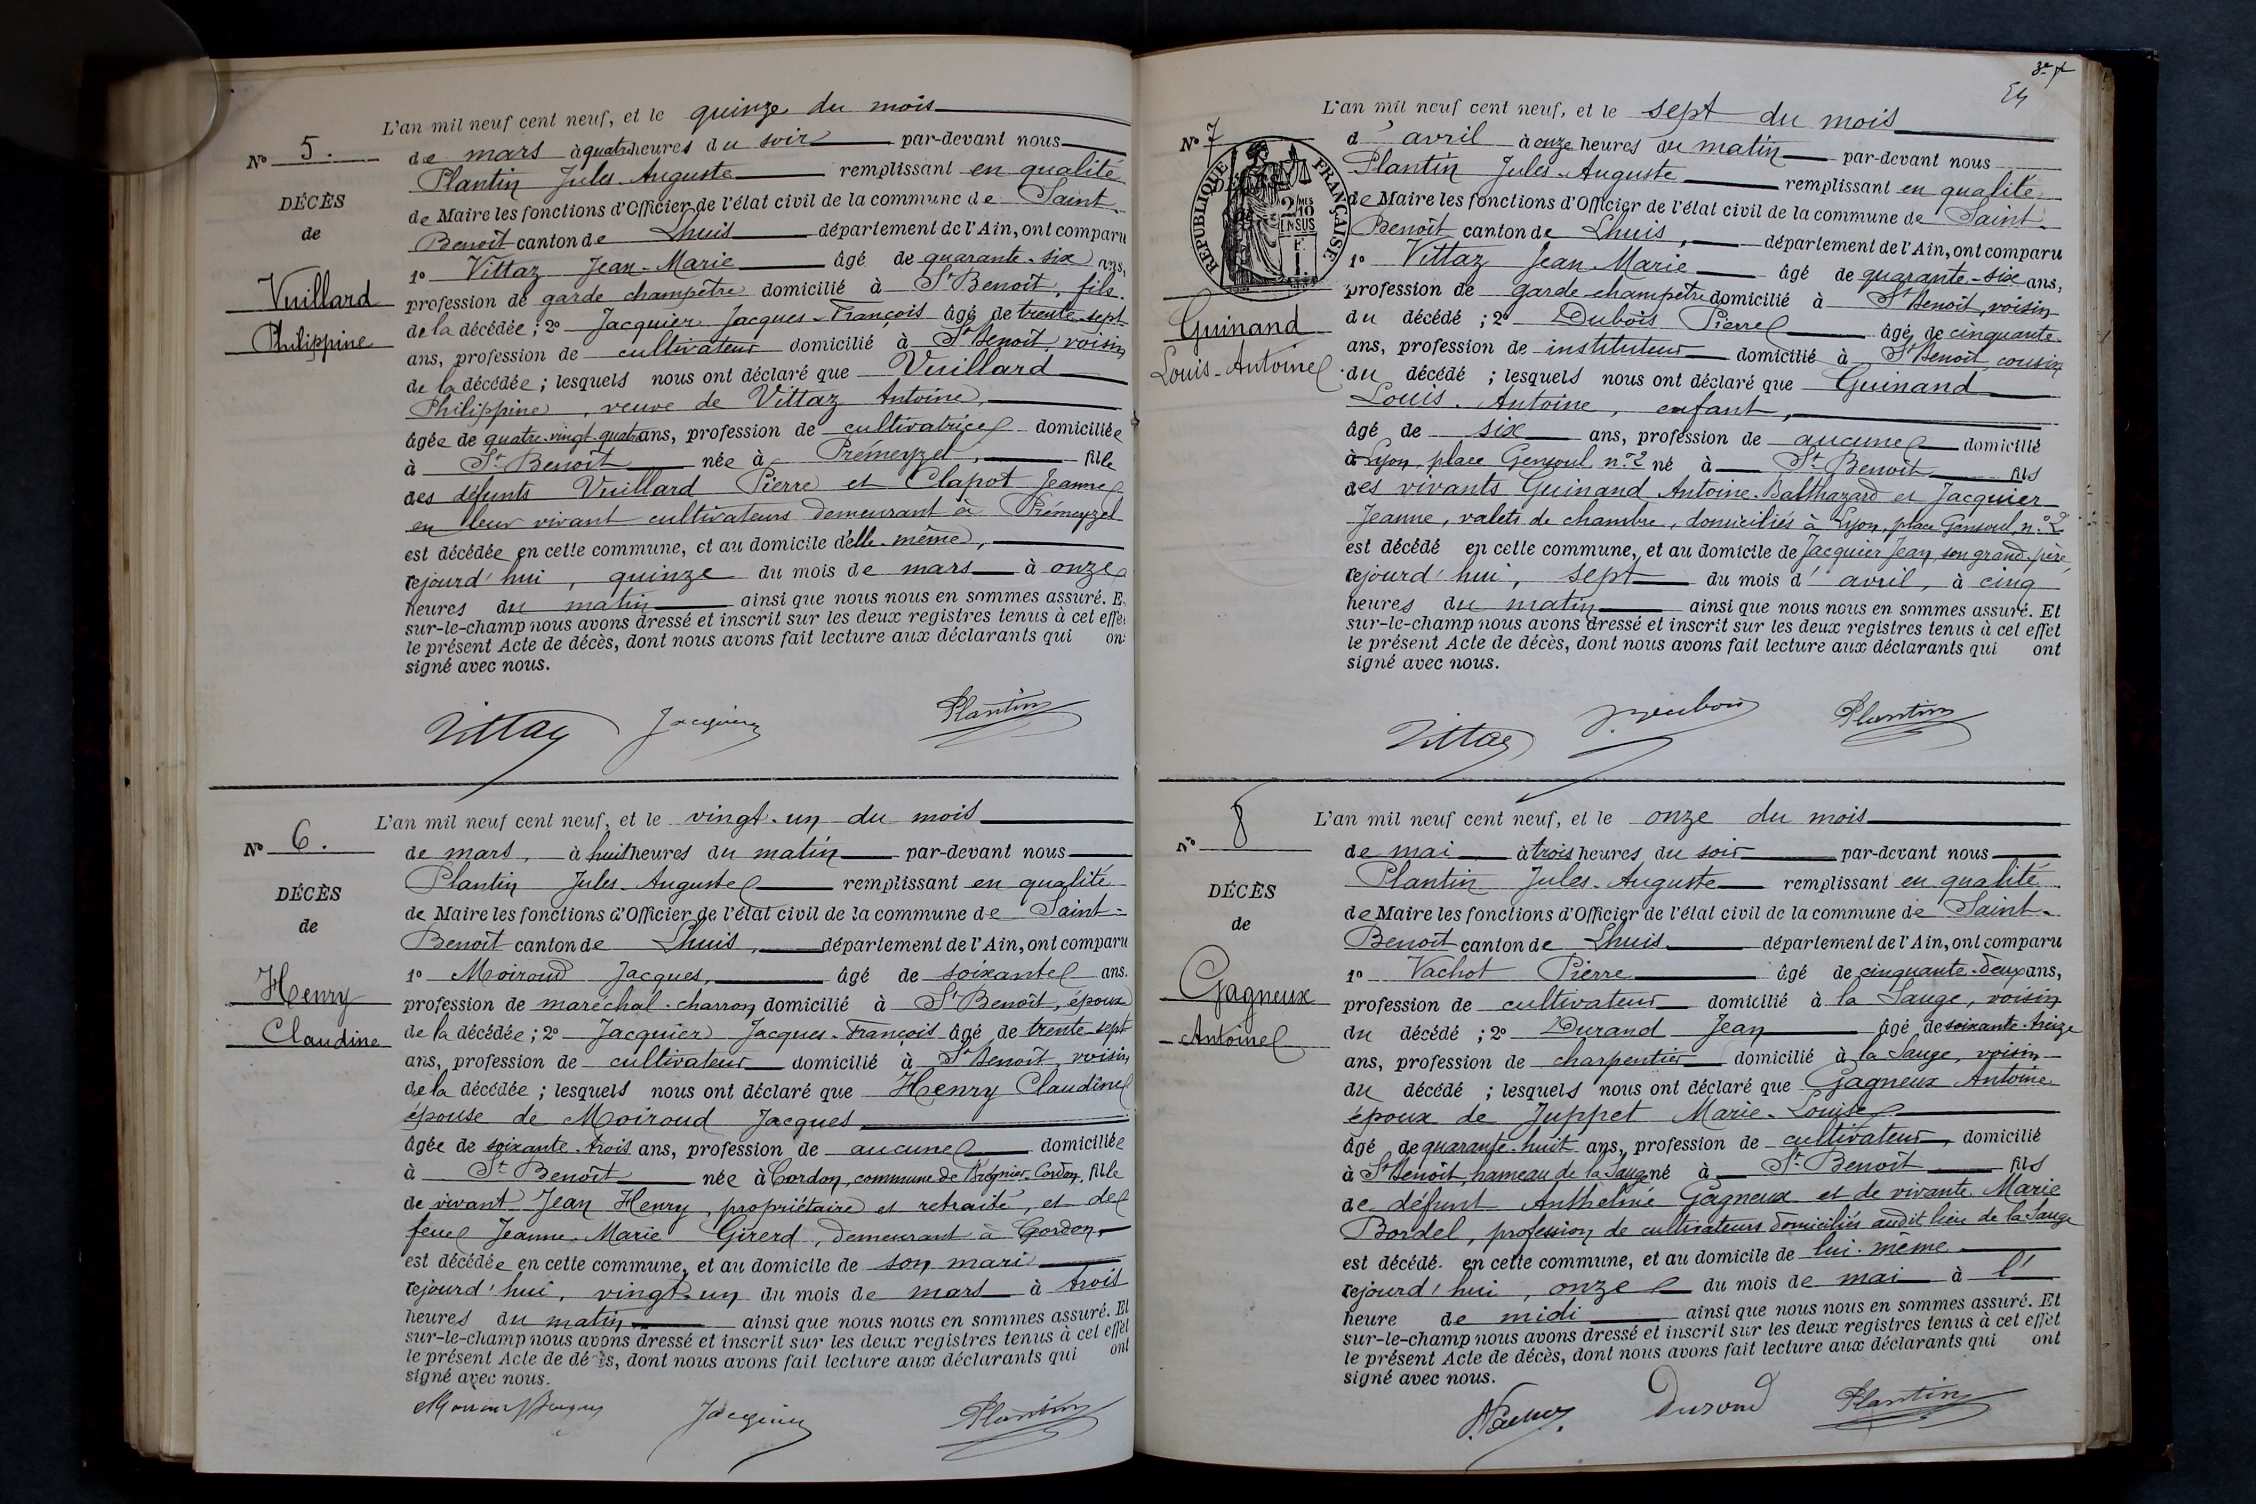 L'an mil neuf cent neuf, et le quinze du mois
N° 5.
de mars à quatre heures du soir par-devant nous
Plantin Jules-Auguste remplissant en qualité
DÉCÈS
de Maire les fonctions d'Officier de l'état civil de la commune de Saint-
de
Benoît canton de Lhuis département de l'Ain, ont comparu
1° Vittaz Jean-Marie âgé de quarante-six ans,
Vuillard
profession de garde champêtre domicilié à St Benoît, fils
de la décédée ; 2° Jacquier Jacques-François âgé de trente-sept
Philippine
ans, profession de cultivateur domicilié à St Benoît, voisin
de la décédée ; lesquels nous ont déclaré que Vuillard
Philippine, veuve de Vittaz Antoine,
âgée de quatre-vingt-quatre ans, profession de cultivatrice domiciliée
à St Benoît née à Prémeyzel, fille
des défunts Vuillard Pierre et Clapot Jeanne
en leur vivant cultivateurs demeurant à Prémeyzel
est décédée en cette commune, et au domicile d'elle-même,
cejourd'hui, quinze du mois de mars à onze
heures du matin ainsi que nous nous en sommes assuré. E
sur-le-champ nous avons dressé et inscrit sur les deux registres tenus à cet effet
le présent Acte de décès, dont nous avons fait lecture aux déclarants qui on
signé avec nous.
Vittaz Jacquier Plantin
L'an mil neuf cent neuf, et le vingt-un du mois
N° 6.
de mars, à huit heures du matin par-devant nous
Plantin Jules-Auguste remplissant en qualité
DÉCÈS
de Maire les fonctions d'Officier de l'état civil de la commune de Saint-
de
Benoît canton de Lhuis, département de l'Ain, ont comparu
1° Moiroud Jacques, âgé de soixante ans.
Henry
profession de maréchal-charron domicilié à St Benoît, époux
Claudine
de la décédée ; 2° Jacquier Jacques-François âgé de trente-sept
ans, profession de cultivateur domicilié à St Benoît voisin
de la décédée ; lesquels nous ont déclaré que Henry Claudine
épouse de Moiroud Jacques
âgée de soixante-trois ans, profession de aucune domiciliée
à St Benoît née à Cordon, commune de Brégnier-Cordon, fille
de vivant Jean Henry, propriétaire et retraité, et de
feue Jeanne-Marie Girerd, demeurant à Cordon,
est décédée en cette commune, et au domicile de son mari
cejourd'hui, vingt-un du mois de mars à trois
heures du matin ainsi que nous nous en sommes assuré. Et
sur-le-champ nous avons dressé et inscrit sur les deux registres tenus à cet effet
le présent Acte de décès, dont nous avons fait lecture aux déclarants qui ont
signé avec nous.
Jacquier Plantin
3e
L'an mil neuf cent neuf, et le sept du mois
N° 7
d'avril à onze heures du matin par-devant nous
Plantin Jules-Auguste remplissant en qualité
RÉPUBLIQUE FRANÇAISE
2/10 EN SUS
de Maire les fonctions d'Officier de l'état civil de la commune de Saint-
Benoît canton de Lhuis, département de l'Ain, ont comparu
1° Vittaz Jean-Marie âgé de quarante-six ans,
profession de garde champêtre domicilié à St Benoît, voisin
Guinand
du décédé ; 2° Dubois Pierre âgé de cinquante
Louis-Antoine
ans, profession de instituteur domicilié à St Benoît cousin
du décédé ; lesquels nous ont déclaré que Guinand
Louis-Antoine, enfant,
âgé de six ans, profession de aucune domicilié
à Lyon, place Gensoul, n°2 né à St Benoît fils
des vivants Guinand Antoine-Balthazard et Jacquier
Jeanne, valets de chambre, domiciliés à Lyon, place Gensoul, n°2
est décédé en cette commune, et au domicile de Jacquier Jean, son grand-père,
cejourd'hui, sept du mois d'avril, à cinq
heures du matin ainsi que nous nous en sommes assuré. Et
sur-le-champ nous avons dressé et inscrit sur les deux registres tenus à cet effet
le présent Acte de décès, dont nous avons fait lecture aux déclarants qui ont
signé avec nous.
Vittaz P. Dubois Plantin
L'an mil neuf cent neuf, et le onze du mois
N° 8
de mai à trois heures du soir par-devant nous
Plantin Jules-Auguste remplissant en qualité
DÉCÈS
de Maire les fonctions d'Officier de l'état civil de la commune de Saint-
de
Benoît canton de Lhuis département de l'Ain, ont comparu
1° Vachot Pierre âgé de cinquante-deux ans,
Gagneux
profession de cultivateur domicilié à la Sauge, voisin
Antoine
du décédé ; 2° Durand Jean âgé de soixante-treize
ans, profession de charpentier domicilié à la Sauge, voisin
du décédé ; lesquels nous ont déclaré que Gagneux Antoine
époux de Juppet Marie-Louise
âgé de quarante-huit ans, profession de cultivateur, domicilié
à St Benoît, hameau de la Sauge né à St Benoît fils
de défunt Anthelme Gagneux et de vivante Marie
Bordel, profession de cultivateurs domiciliés audit lieu de la Sauge
est décédé en cette commune, et au domicile de lui-même
cejourd'hui, onze du mois de mai à l'
heure de midi ainsi que nous nous en sommes assuré. Et
sur-le-champ nous avons dressé et inscrit sur les deux registres tenus à cet effet
le présent Acte de décès, dont nous avons fait lecture aux déclarants qui ont
signé avec nous.
Durand Plantin